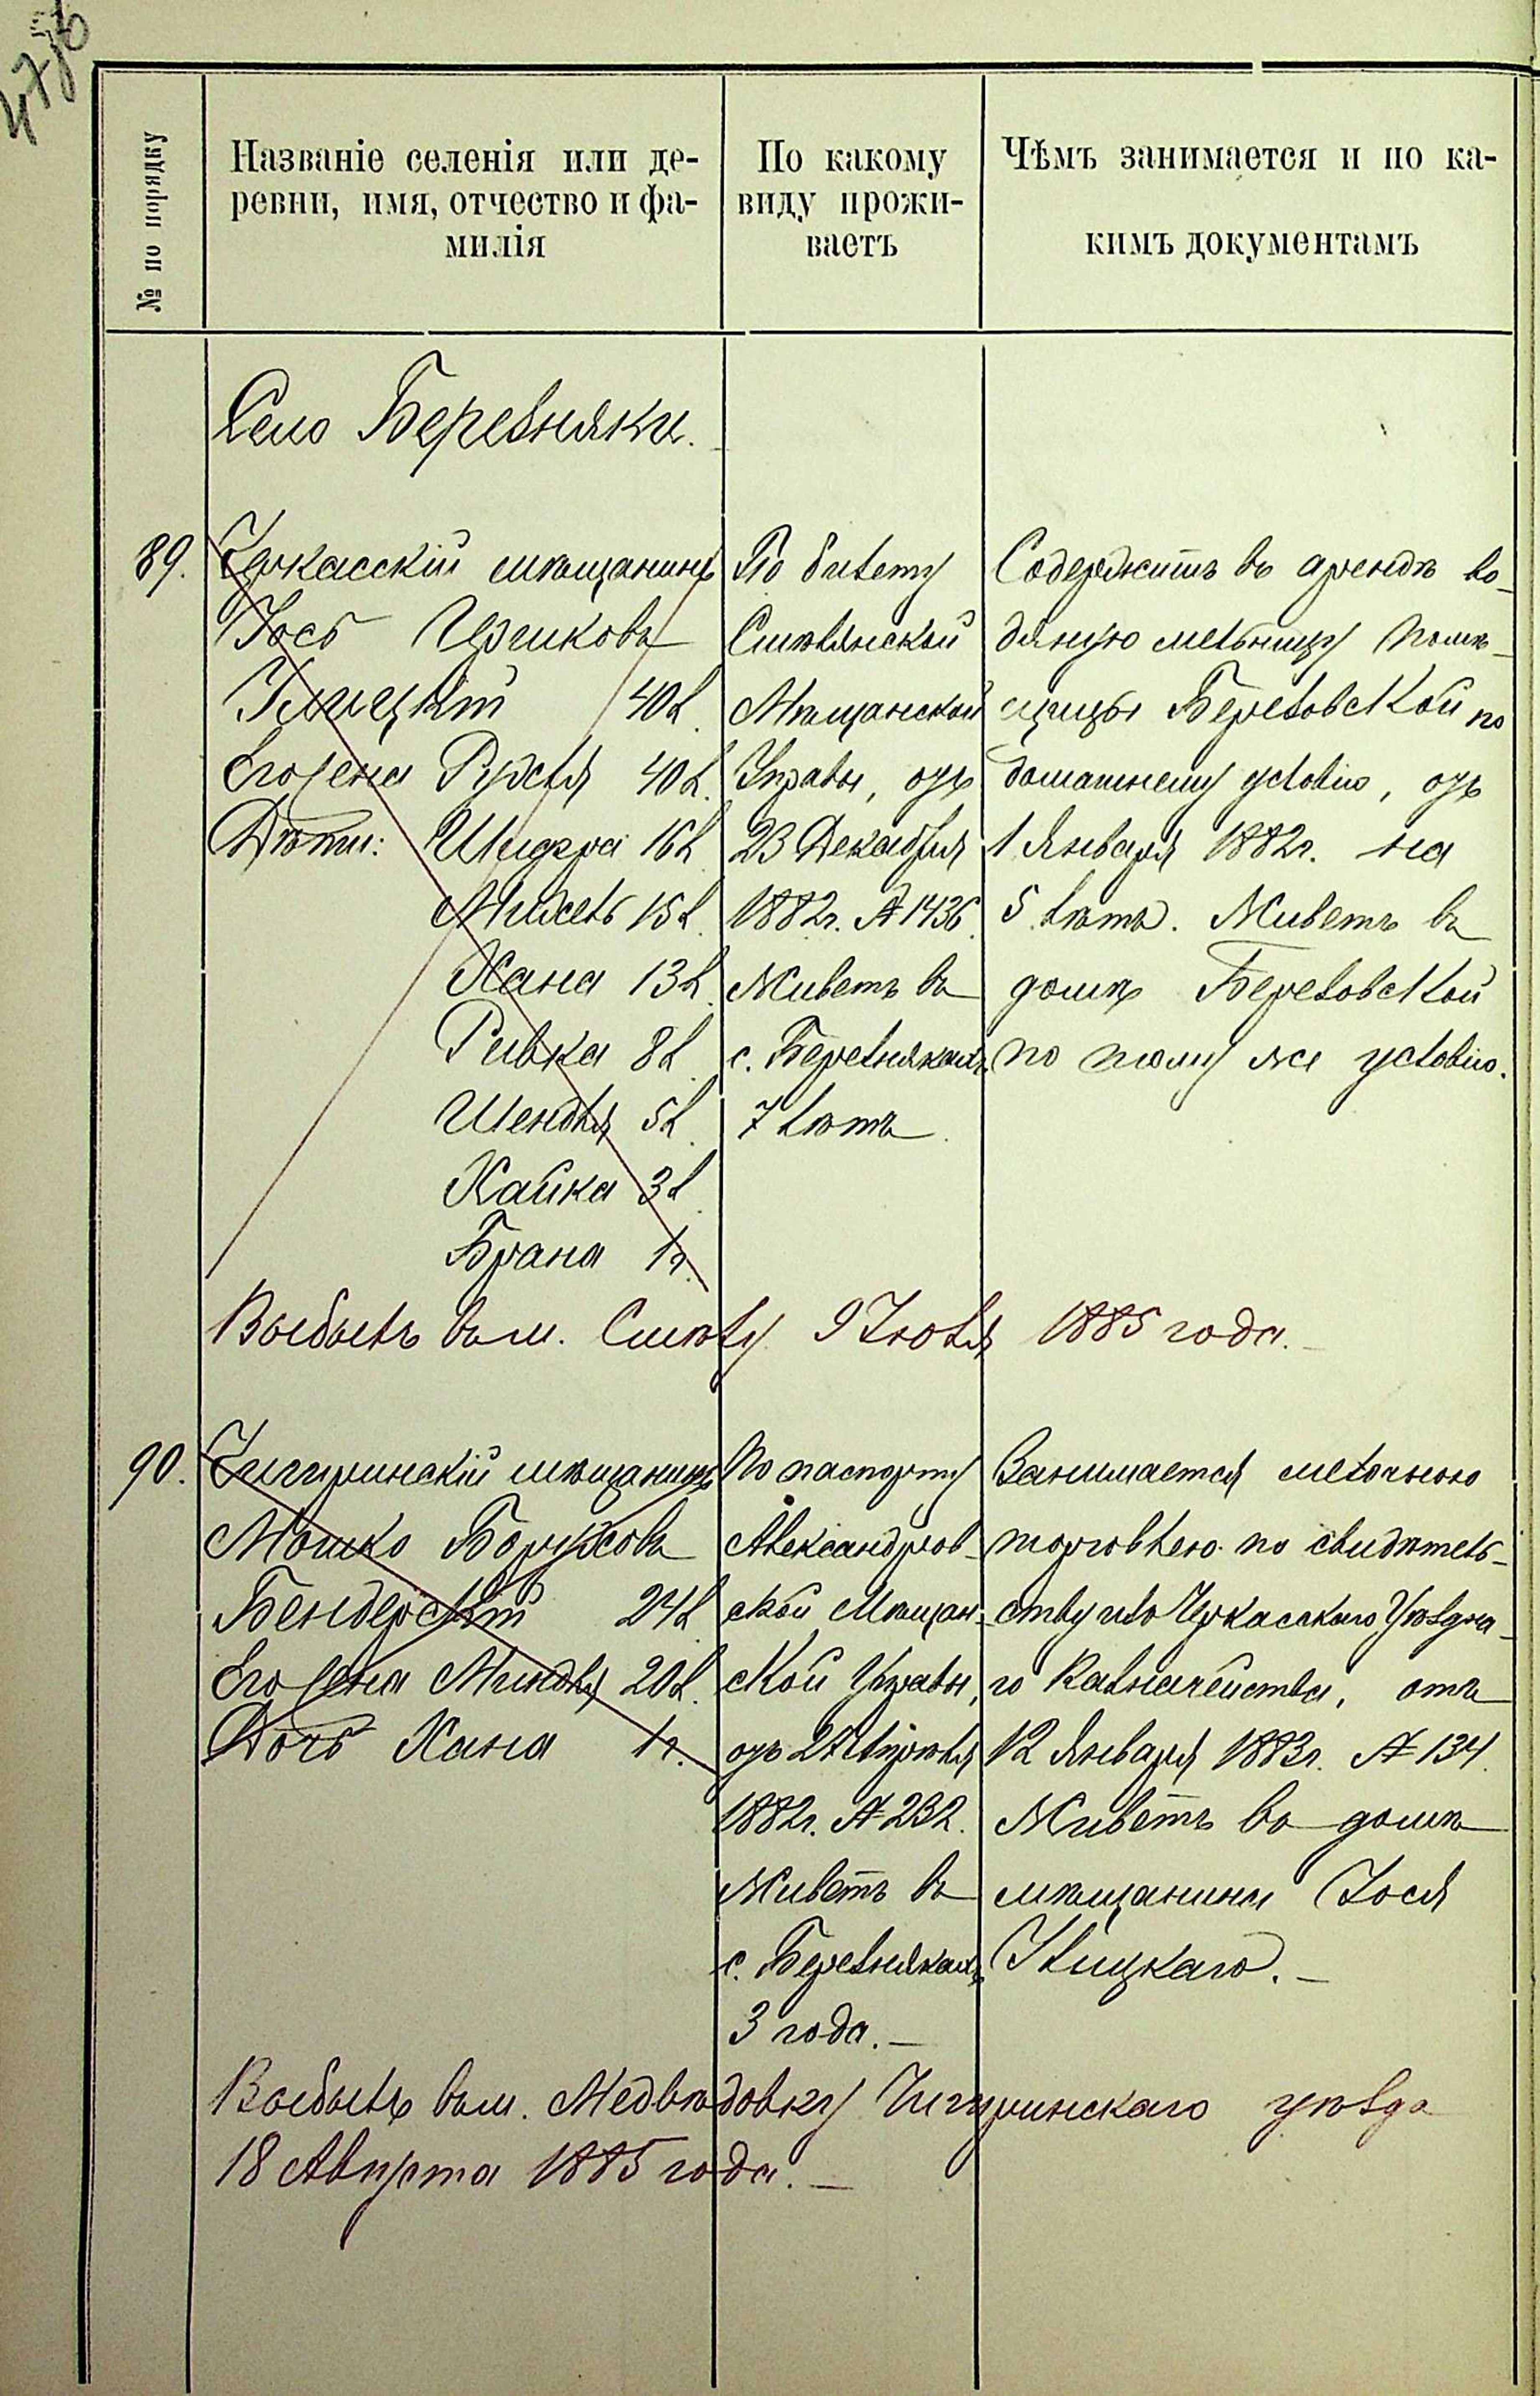 № по порядку
Названіе селенія или де-
ревни, имя, отчество и фа-
милія
По какому
виду прожи-
ваетъ
Чѣмъ занимается и по ка-
кимъ документамъ
Село Березняки.
89.
Черкасскій мѣщанинъ
Іось Ицриковъ
40 л.
Его жена Рухля 40 л.
Дѣти: Шифра 16 л.
Михель 15 л.
Хана 13 л.
Ривка 8 л.
Шендля 5 л.
Хайка 3 л.
Брана 1 г.
По билету
Смѣлянской
Мѣщанской
Управы, отъ
23 Декабря
1882 г. № 1436.
Живетъ въ
с. Березнякахъ
7 лѣтъ
Содержитъ въ арендѣ во-
дяную мельницу помѣ-
щицы Березовской по
домашнему условію, отъ
1 Января 1882 г. на
5 лѣтъ. Живетъ въ
домѣ Березовской
по тому же условію.
Выбылъ въ м. Смѣлу 9 Іюля 1885 года.
90.
Чигиринскій мѣщанинъ
Мошко Боруховъ
Бендерскій 24 л.
Его жена Миндля 20 л.
Дочь Хана 1 г.
По паспорту
Александров-
ской Мѣщан-
ской Управы,
отъ Апрѣля
1882 г. № 232.
Живетъ въ
с. Березнякахъ
3 года.
Занимается мелочною
торговлею по свидѣтель-
ству изъ Черкасскаго Уѣздна-
го Казначейства, отъ
12 Января 1883 г. № 134.
Живетъ въ домѣ
мѣщанина Іося
Улицкаго.
Выбылъ въ м. Медвѣдовку Чигиринскаго уѣзда
18 Августа 1885 года.